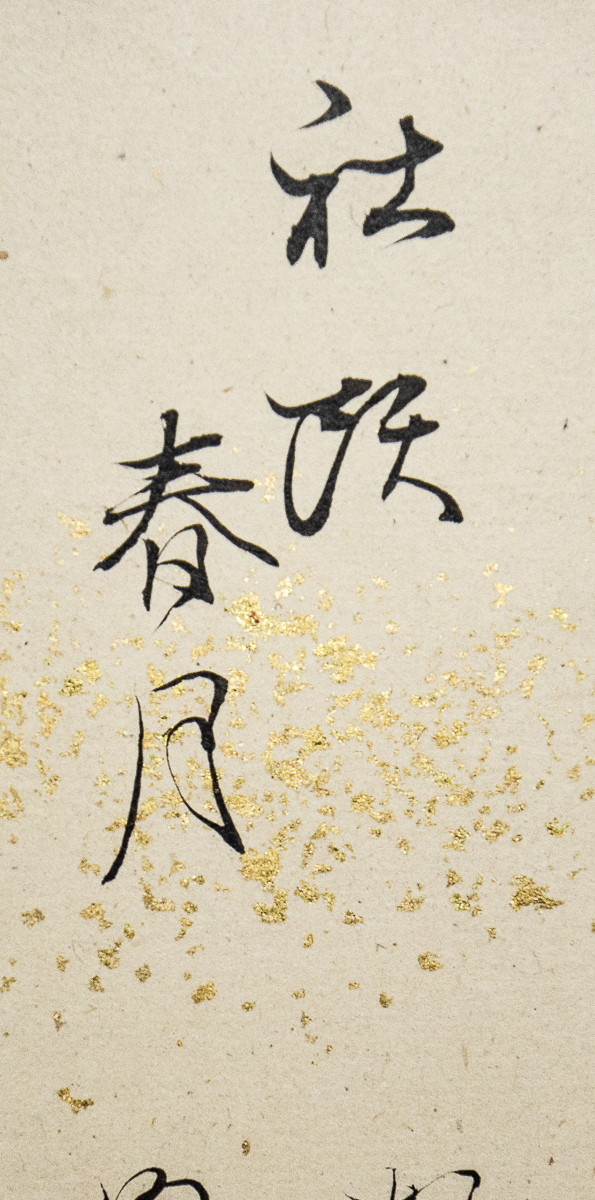 社頭
春月